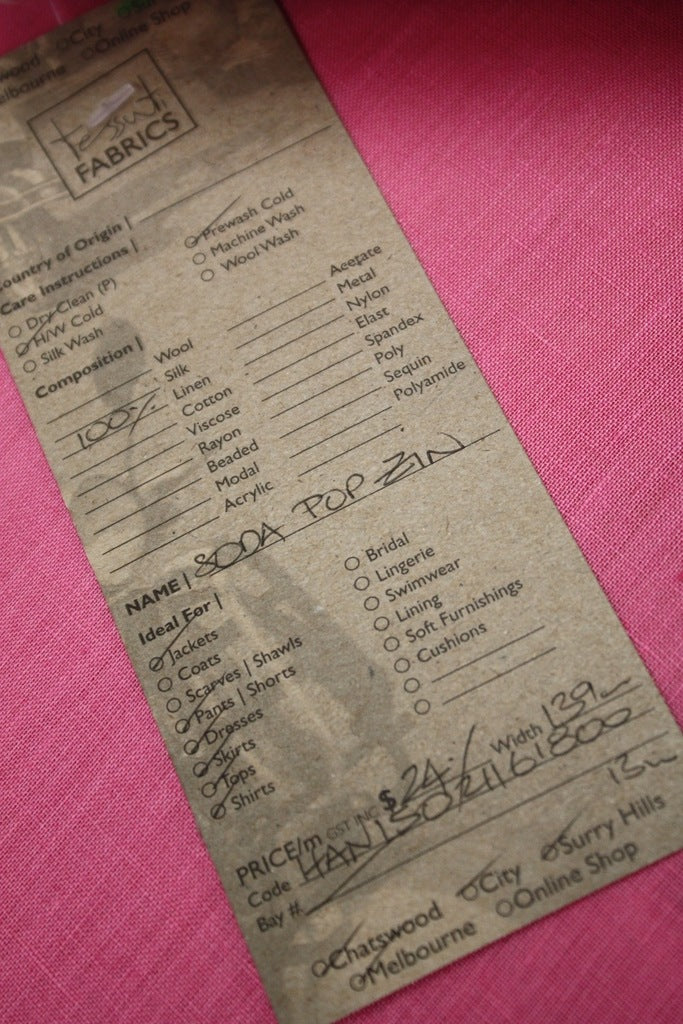 City
wood
Online Shop
elbourne
tessuti
FABRICS
ountry of Origin |
Care Instructions |
Prewash Cold
Dry Clean (P)
Machine Wash
H/W Cold
Wool Wash
Silk Wash
Composition |
Wool
Acetate
Silk
Metal
100% Linen
Nylon
Cotton
Elast
Viscose
Spandex
Rayon
Poly
Beaded
Sequin
Modal
Polyamide
Acrylic
NAME | SODA POP ZIN
Ideal For |
Jackets
Bridal
Coats
Lingerie
Scarves | Shawls
Swimwear
Pants | Shorts
Lining
Dresses
Soft Furnishings
Skirts
Cushions
Tops
Shirts
PRICE/m GST INC. $24./. Width 139
Code HAN15021161800
Bay #
Chatswood
City
Surry Hills
Melbourne
Online Shop